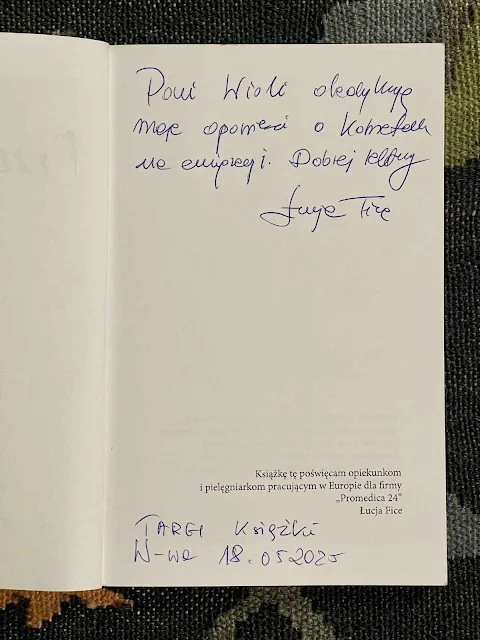 Pani Wioli dedykuję
moje opowieści o kobietach
na emigracji. Dobrej lektury
Łucja Fice
Książkę tę poświęcam opiekunkom
i pielęgniarkom pracującym w Europie dla firmy
„Promedica 24”
Łucja Fice
TARGI Książki
W-wa 18.05.2025